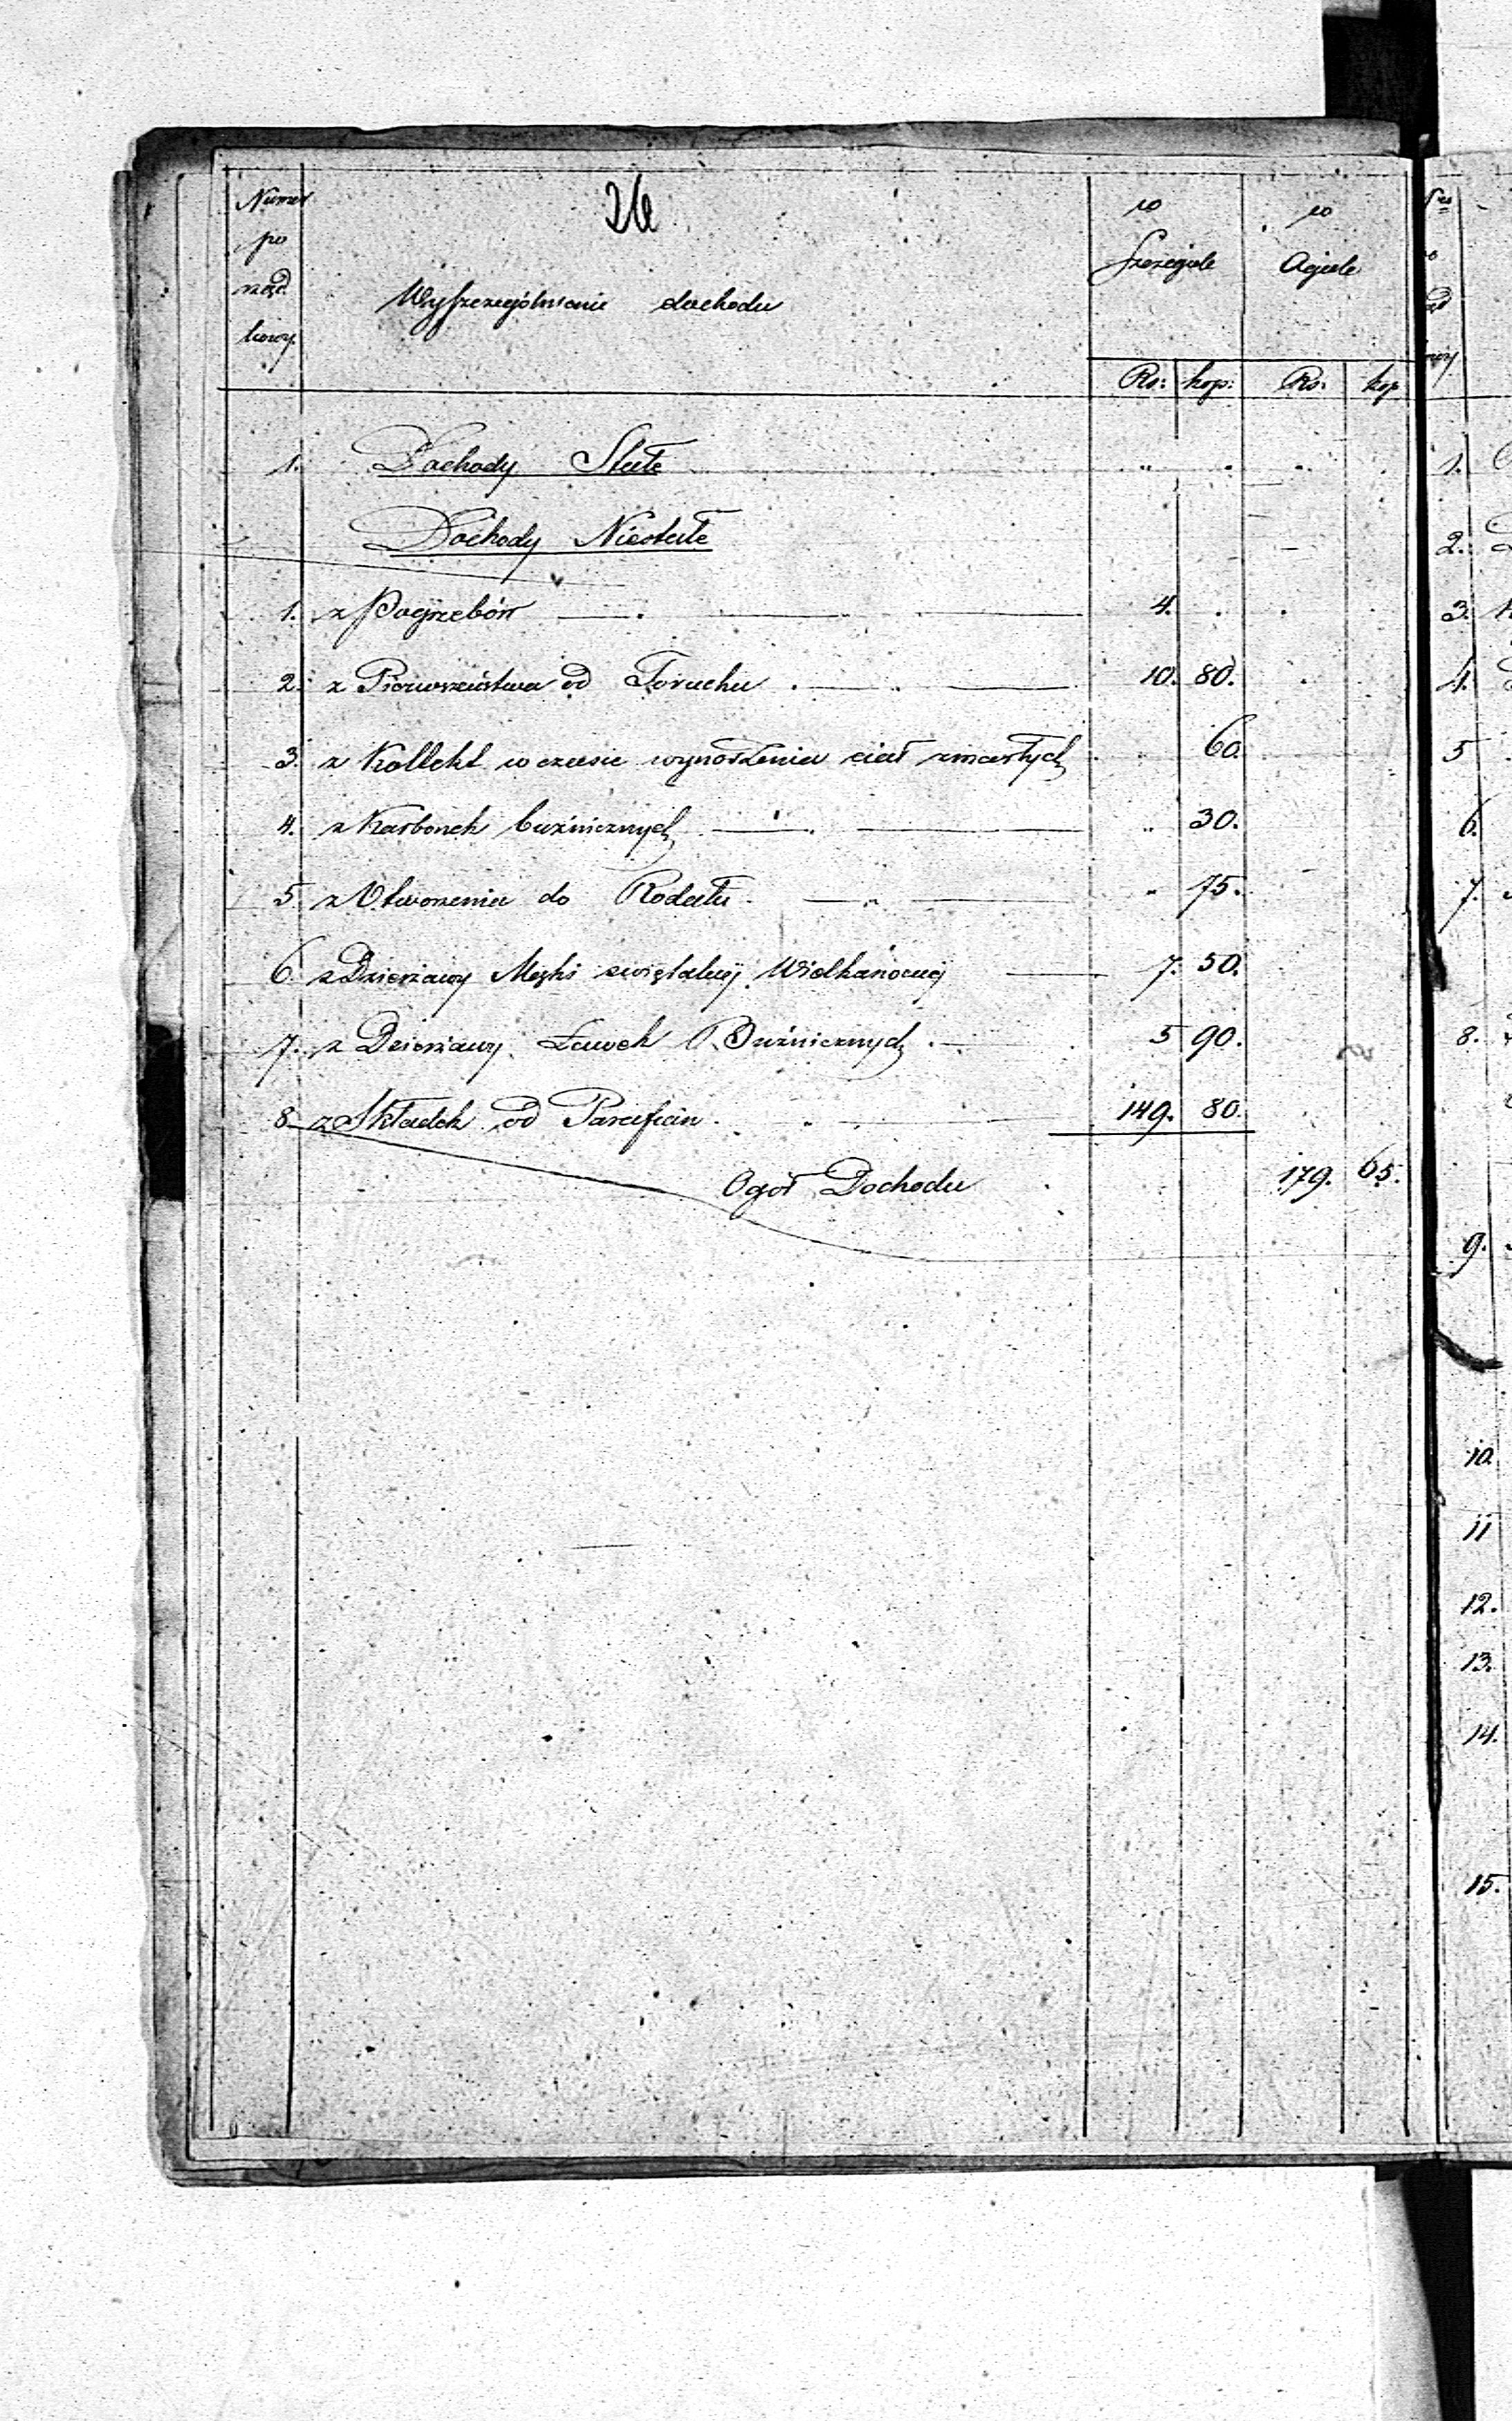 26
Numer
po
rząd
kowy
Wyszczególnienie dochodu
w
Szczególe
w
Ogóle
Rs: kop: Rs: kop
1. Dochody Stałe
Dochody Niestałe
1. z Pogrzebów 4.
2. z Pierwszeństwa od Foruchu 10. 80.
3. z Kollekt w czasie wynoszenia ciał zmarłych 60.
4. z Karbonek buźnicznych 30.
5. z Otworzenia do Rodału 75.
6. z Dzierżawy Mąki świętalnej Wielkanocnej 7. 50.
7. z Dzierżawy Ławek Buźnicznych 5 90.
8 z Składek od Parafian 149. 80.
Ogół Dochodu 179. 65.
1.
2.
3.
4.
5
6.
7.
8.
9.
10.
11
12.
13.
14.
15.